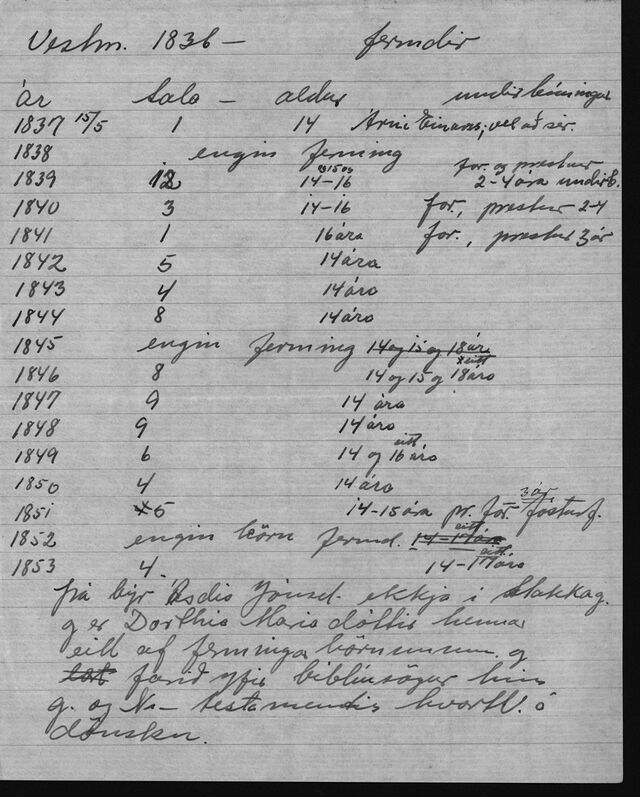 Vestm. 1836 – fermdir
ár tala – aldur undirbúningur
1837 15/5 1 14 Árni Einars; vel að sér.
1838 engin ferming
1839 12 14–15 og 16 for. og prestur 2–4 ára undirb.
1840 3 14–16 for., prestur 2–4
1841 1 16 ára for., prestur 3 ár
1842 5 14 ára
1843 4 14 ára
1844 8 14 ára
1845 engin ferming 14 og 15 og 18 ár
1846 8 14 og 15 og eitt 18 ára
1847 9 14 ára
1848 9 14 ára
1849 6 14 og eitt 16 ára
1850 4 14 ára
1851 5 14–15 ára pr. for. 3 ár fósturf.
1852 engin börn fermd. 14–17 ára
1853 4. 14–eitt 17 ára
þá býr Ásdís Jónsd. ekkja í Stakkag.
g er Dorthia Maria dóttir hennar
eitt af ferminga börnunum. g
farið yfir biblíusögur hin
g. og N– testamentis hvortv. á
dönsku.